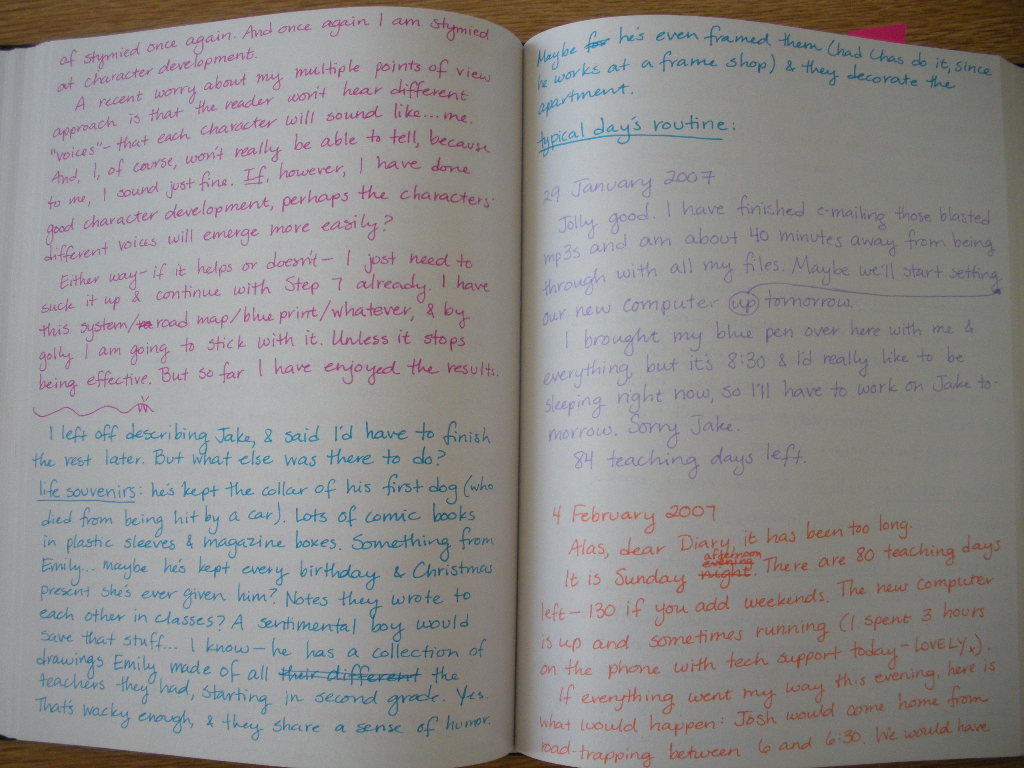 of stymied once again. And once again I am stymied
at character development.
A recent worry about my multiple points of view
approach is that the reader won't hear different
"voices" – that each character will sound like... me.
And, I, of course, won't really be able to tell, because
to me, I sound just fine. If, however, I have done
good character development, perhaps the characters'
different voices will emerge more easily?
Either way – if it helps or doesn't – I just need to
suck it up & continue with Step 7 already. I have
this system/ road map/blue print/whatever, & by
golly I am going to stick with it. Unless it stops
being effective. But so far I have enjoyed the results.
I left off describing Jake, & said I'd have to finish
the rest later. But what else was there to do?
life souvenirs: he's kept the collar of his first dog (who
died from being hit by a car). Lots of comic books
in plastic sleeves & magazine boxes. Something from
Emily... maybe he's kept every birthday & Christmas
present she's ever given him? Notes they wrote to
each other in classes? A sentimental boy would
save that stuff... I know – he has a collection of
drawings Emily made of all their different the
teachers they had, starting in second grade. Yes.
That's wacky enough, & they share a sense of humor.
Maybe for he's even framed them (had Chas do it, since
he works at a frame shop) & they decorate the
apartment.
typical day's routine:
29 January 2007
Jolly good. I have finished e-mailing those blasted
mp3s and am about 40 minutes away from being
through with all my files. Maybe we'll start setting
our new computer up tomorrow.
I brought my blue pen over here with me &
everything, but it's 8:30 & I'd really like to be
sleeping right now, so I'll have to work on Jake to-
morrow. Sorry Jake.
84 teaching days left.
4 February 2007
Alas, dear Diary, it has been too long.
afternoon
evening
It is Sunday night. There are 80 teaching days
left – 130 if you add weekends. The new computer
is up and sometimes running (I spent 3 hours
on the phone with tech support today – LOVELY).
If everything went my way this evening, here is
what would happen: Josh would come home from
road-trapping between 6 and 6:30. We would have